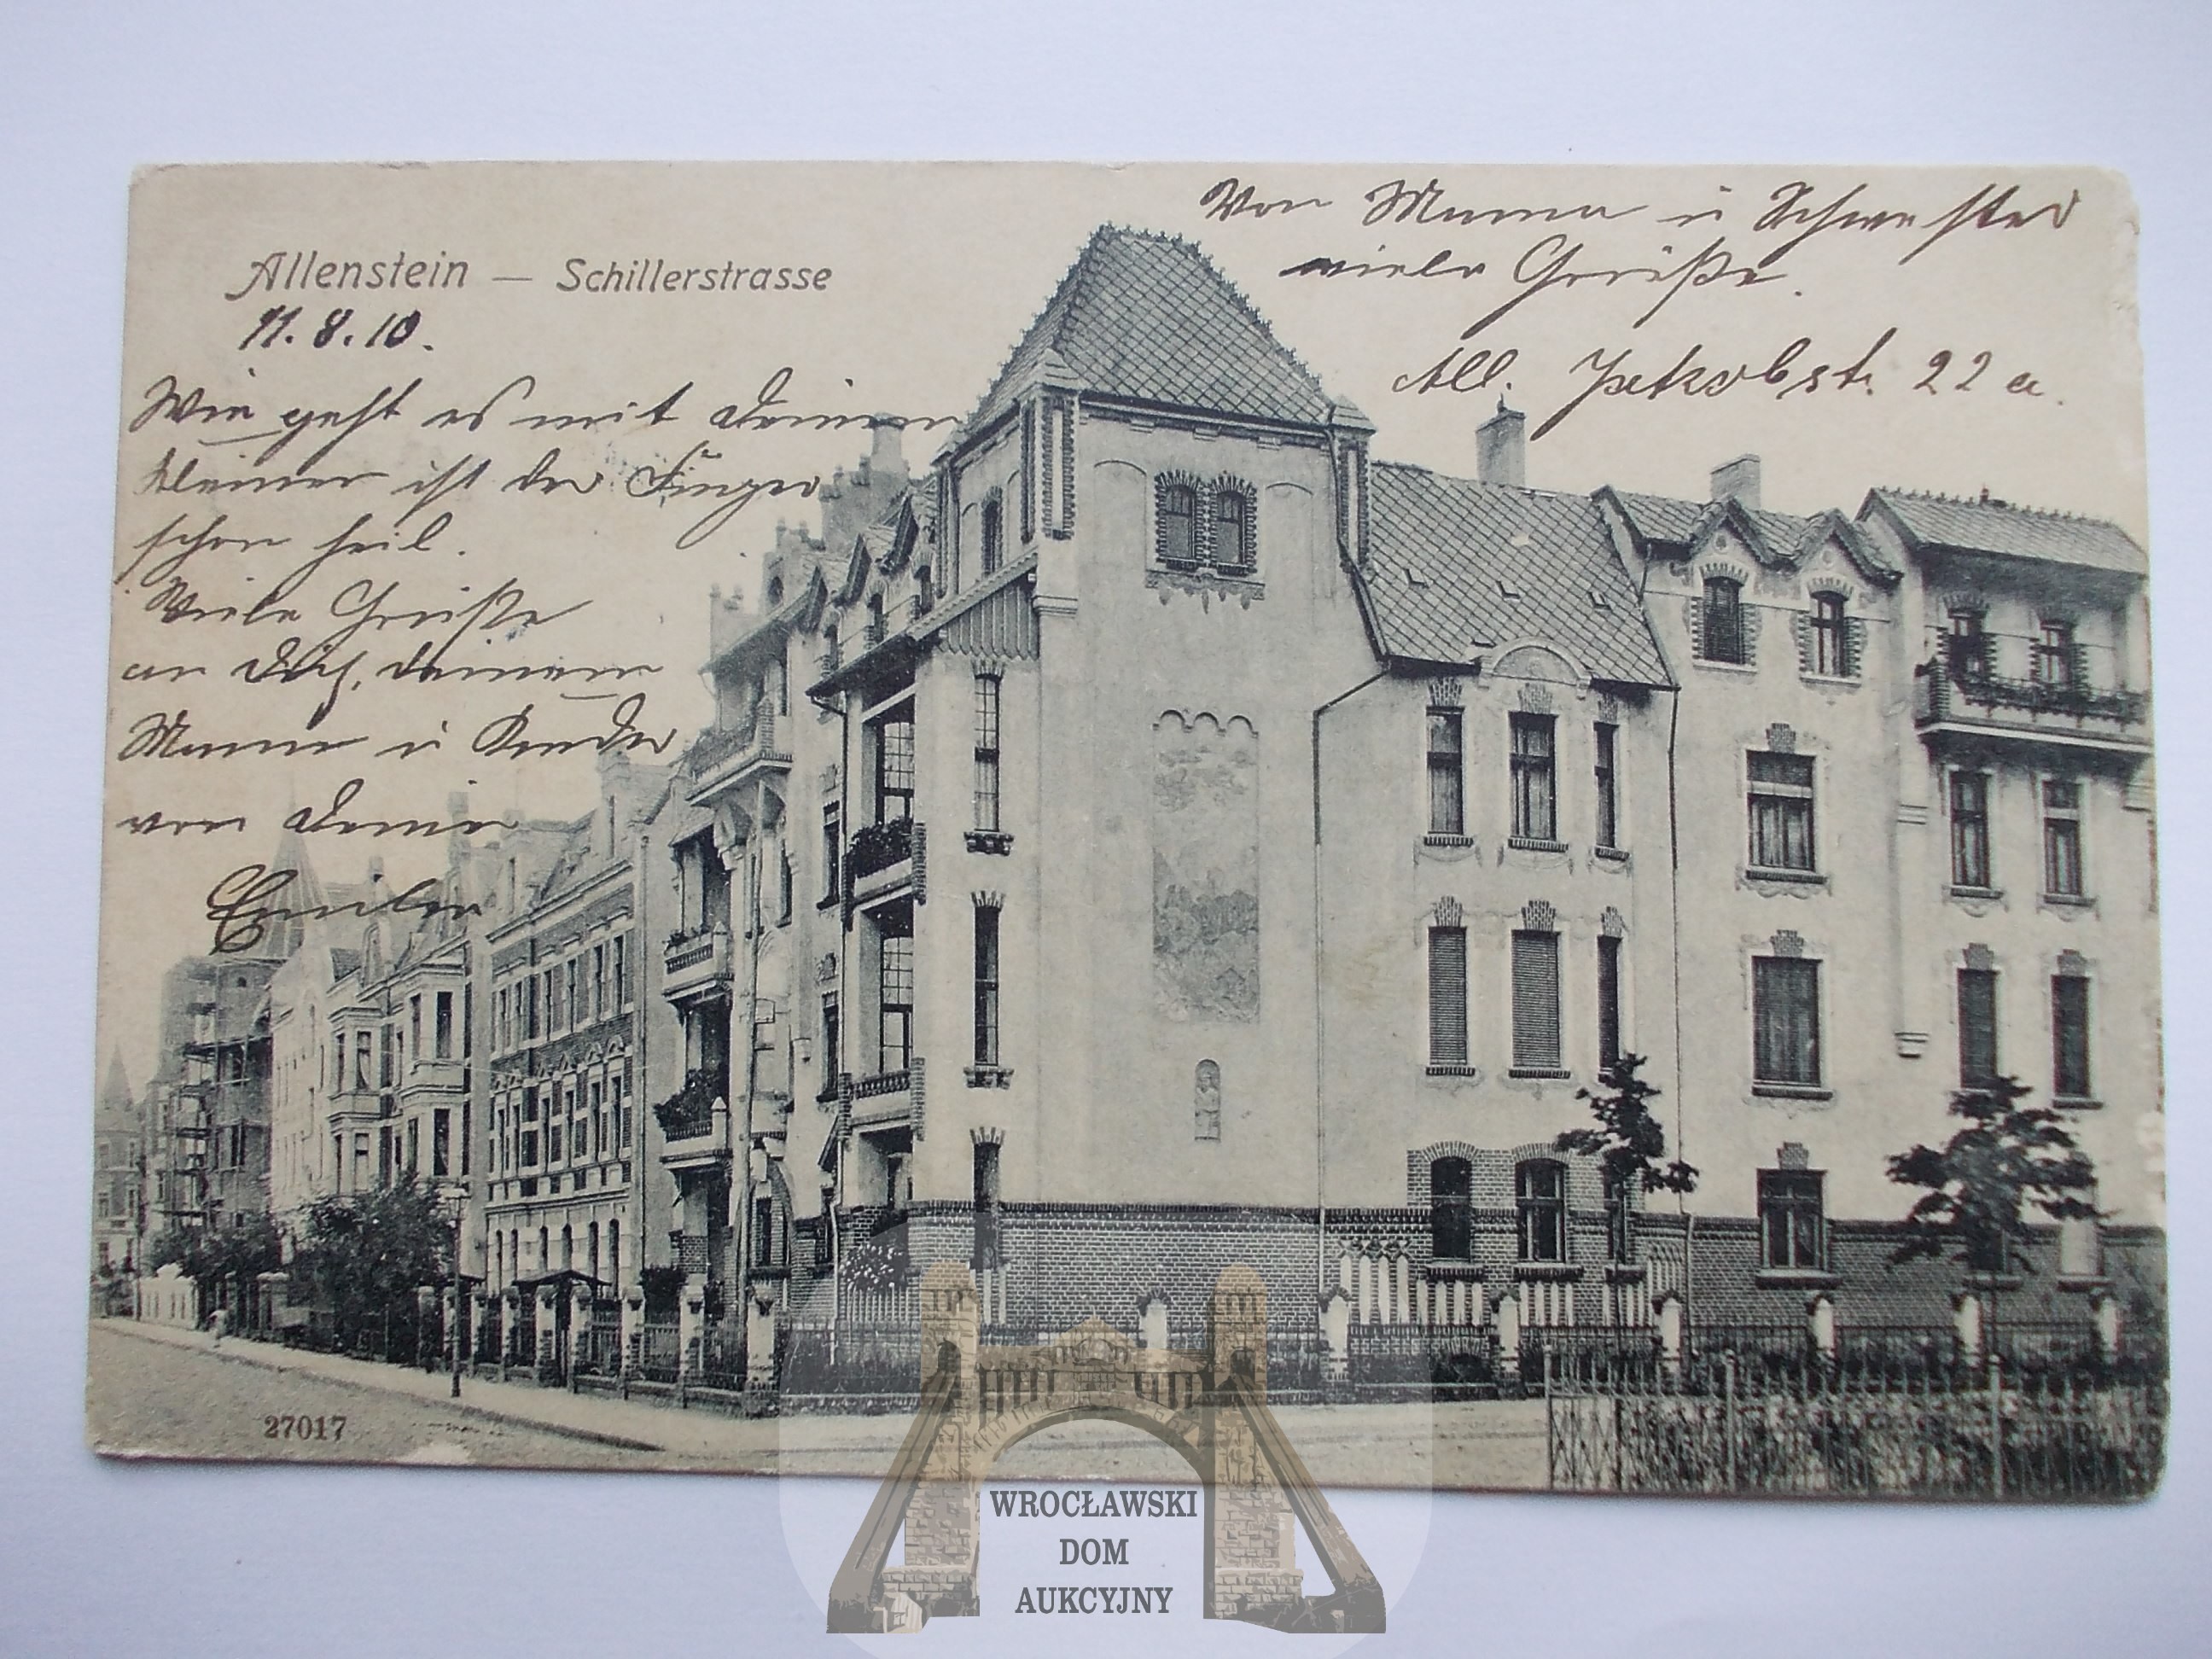 Allenstein — Schillerstrasse
11.8.10.
Wie geht es mit Deinem
kleiner ist der Finger
schon heil.
Viele Grüße
an Dich, Deinem
Mama u Bruder
von Deine
Von Mama u Schwester
viele Grüße.
All. Jakobstr. 22 a.
27017
WROCŁAWSKI
DOM
AUKCYJNY